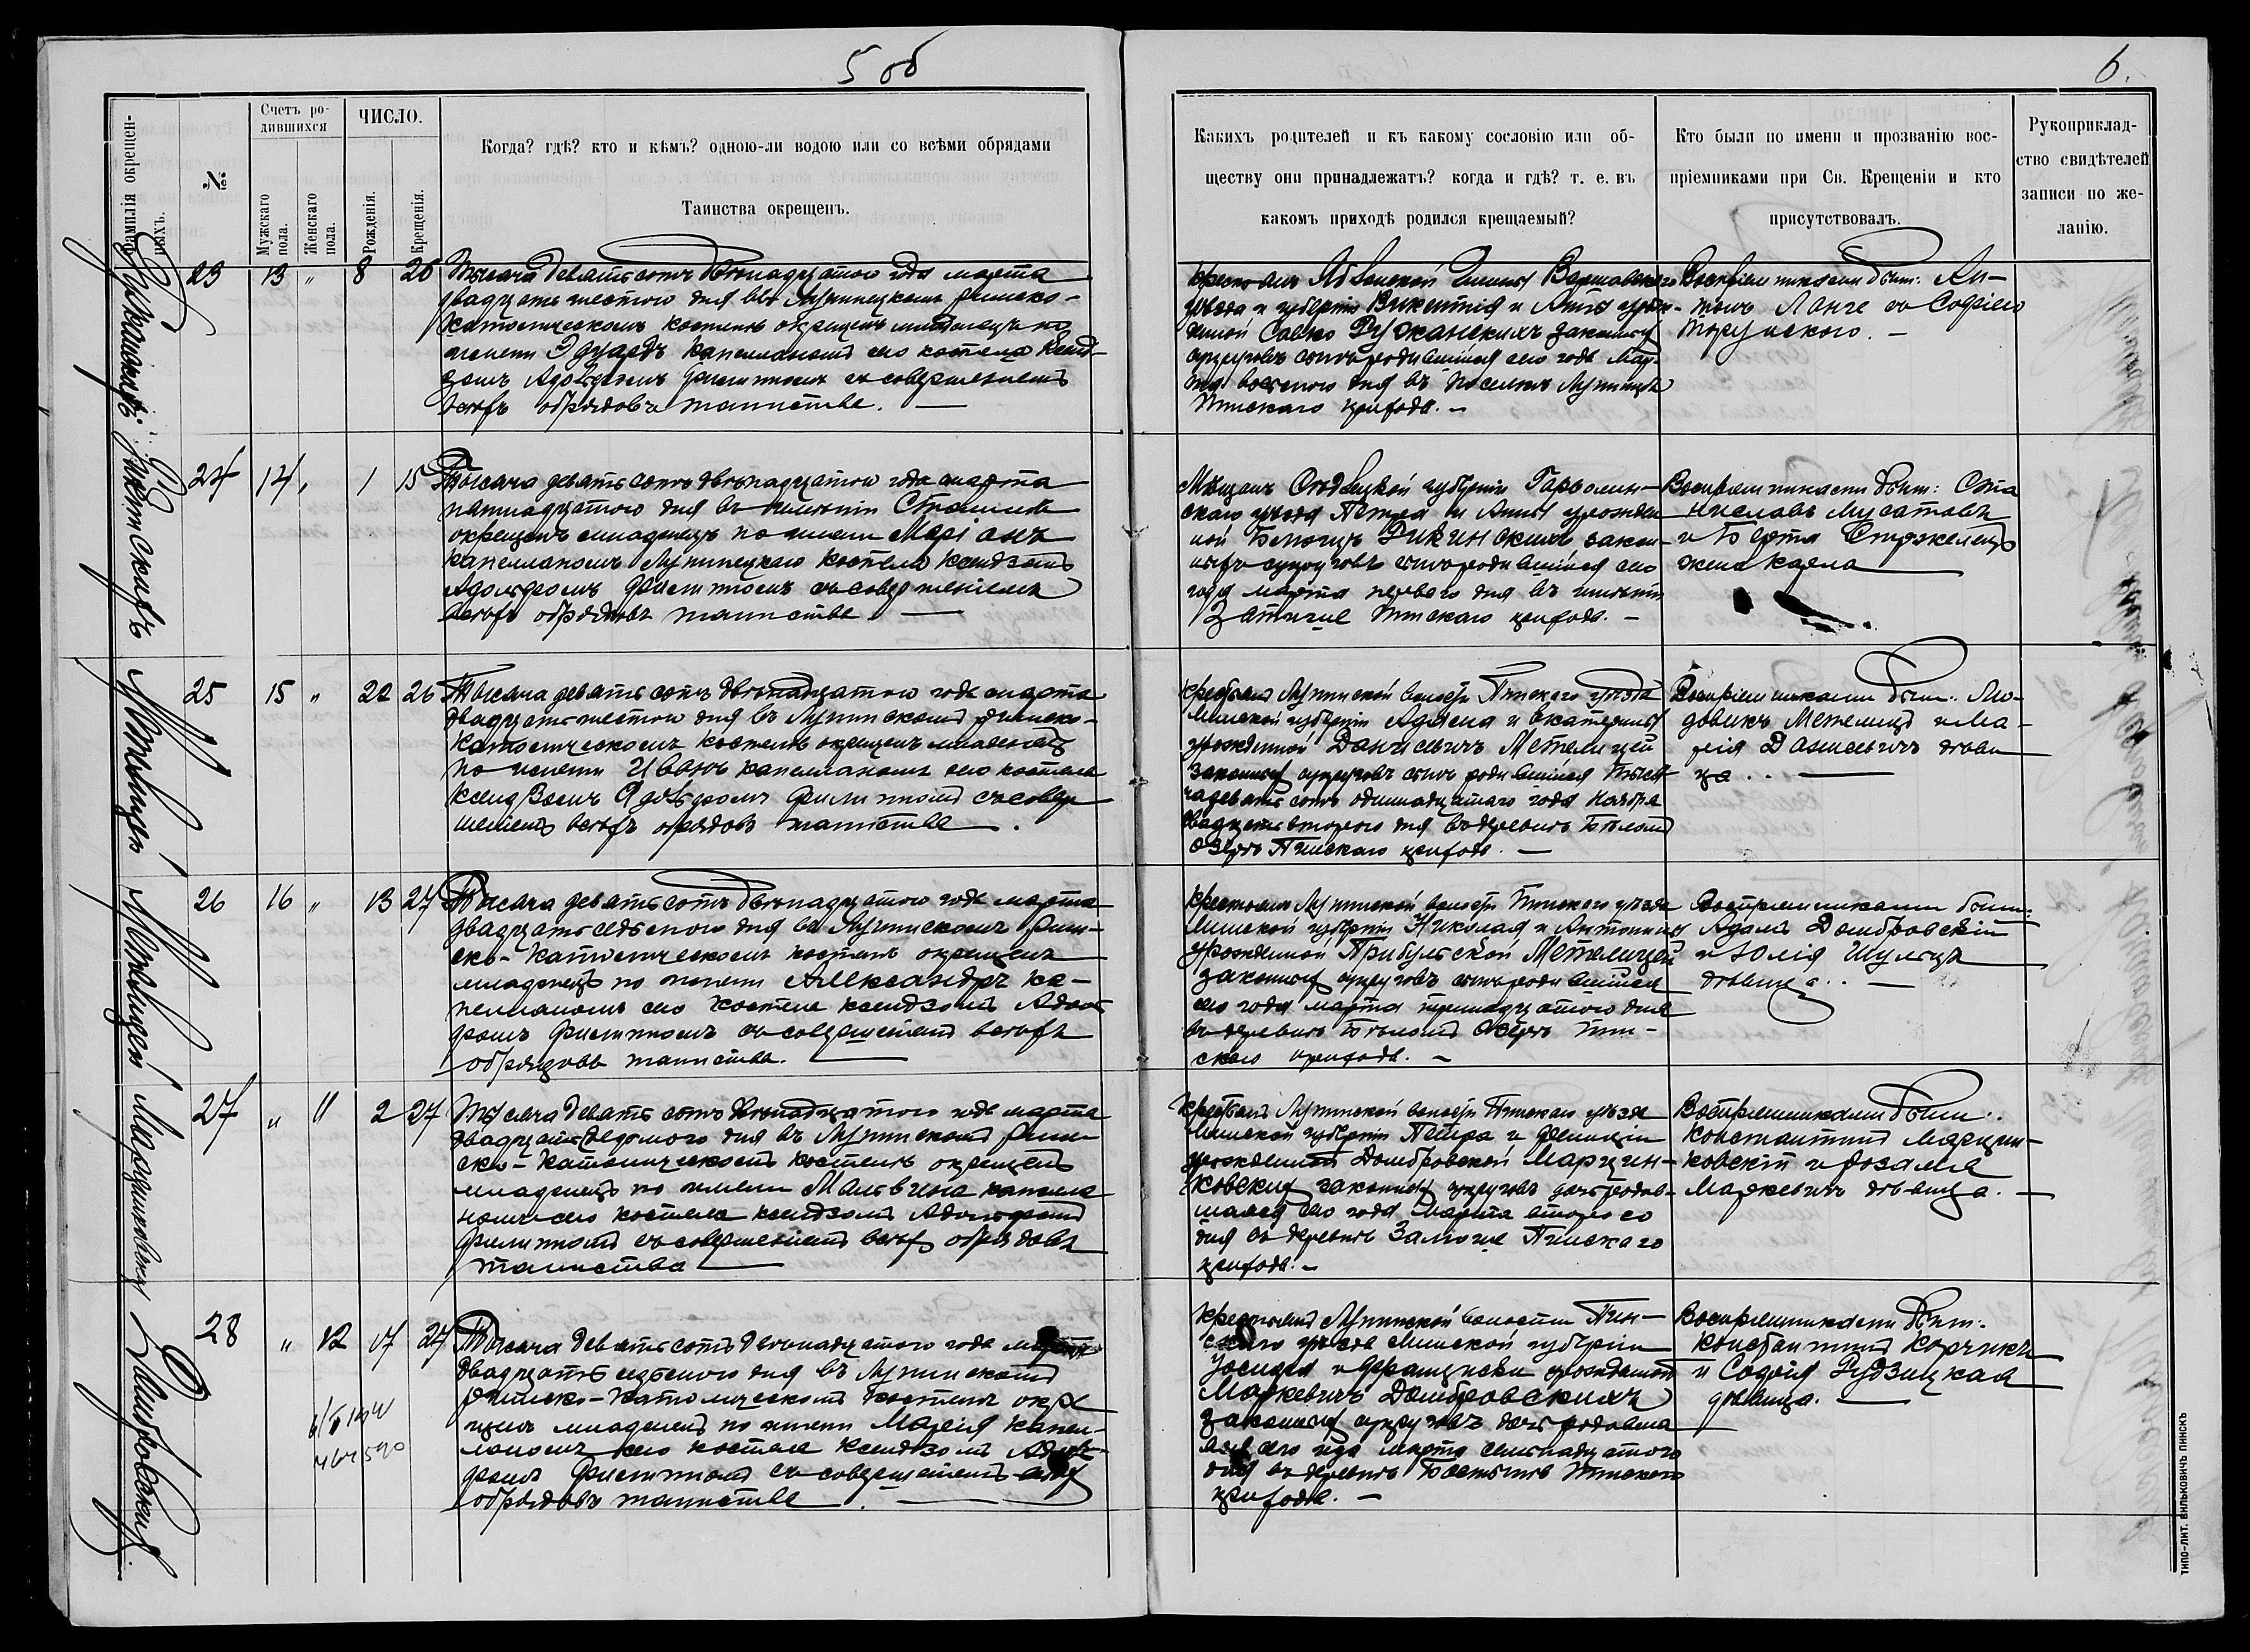 5 об
6.
Фамилія окрещен-
ныхъ.
№
Счетъ ро-
дившихся
Мужскаго
пола.
Женскаго
пола.
ЧИСЛО.
Рожденія.
Крещенія.
Когда? гдѣ? кто и кѣмъ? одною-ли водою или со всѣми обрядами
Таинства окрещенъ.
Какихъ родителей и къ какому сословію или об-
ществу они принадлежатъ? когда и гдѣ? т. е. въ
какомъ приходѣ родился крещаемый?
Кто были по имени и прозванію вос-
пріемниками при Св. Крещеніи и кто
присутствовалъ.
Рукоприклад-
ство свидѣтелей
записи по же-
ланію.
23 13 " 8 26
Тысяча девятьсотъ двѣнадцатого года марта
двадцать шестого дня въ Лунинецкомъ римско-
католическомъ костелѣ окрещенъ младенецъ по
имени Эдуардъ капелланомъ сего костела ксенд-
зомъ Адольфомъ Филиппомъ съ совершеніемъ
всѣхъ обрядовъ таинства. —
уѣзда и губерніи Викентія и Анны урож-
законныхъ
супруговъ сынъ родившійся сего года Мар-
та восьмого дня въ поселкѣ Лунинцѣ
Пинскаго прихода. —
Воспріемниками были: Ан-
тонъ Ланге съ Софіею
24 14 " 1 15
Тысяча девятьсотъ двѣнадцатого года марта
пятнадцатого дня въ имѣніи
окрещенъ младенецъ по имени Маріанъ
капелланомъ Лунинецкаго костела ксендзомъ
Адольфомъ Филиппомъ съ совершеніемъ
всѣхъ обрядовъ таинства —
Мѣщанъ Сѣдлецкой губерніи Гарволин-
скаго уѣзда Петра и Анны урожден-
ной закон-
ныхъ супруговъ сынъ родившійся сего
года марта перваго дня въ имѣніи
Пинскаго прихода. —
Воспріемниками были: Ста
ниславъ Мусатовъ
и Берта
жена Карла
25 15 " 22 26
Тысяча девятьсотъ двѣнадцатого года марта
двадцать шестого дня въ Лунинскомъ римско-
католическомъ костелѣ окрещенъ младенецъ
по имени Иванъ капелланомъ сего костела
ксендзомъ Адольфомъ Филиппомъ съ совер
шеніемъ всѣхъ обрядовъ таинства.
Крестьянъ Лунинской волости Пинскаго уѣзда
Минской губерніи Адама и Екатерины
урожденной Данилевичъ Метелицей
законныхъ супруговъ сынъ родившійся тыся-
ча девятьсотъ одинадцатаго года Ноября
двадцать второго дня въ деревнѣ Бѣломъ
Озерѣ Пинскаго прихода. —
Воспріемниками были: Лю-
довикъ Метелица и Ма-
рія Данилевичъ дѣви
ца. . —
26 16 " 13 27
Тысяча девятьсотъ двѣнадцатого года марта
двадцать седьмого дня въ Лунинскомъ Рим-
ско-католическомъ костелѣ окрещенъ
младенецъ по имени Александръ ка-
пелланомъ сего костела ксендзомъ Адоль
фомъ Филиппомъ съ совершеніемъ всѣхъ
обрядовъ таинства. —
Крестьянъ Лунинской волости Пинскаго уѣзда
Минской губерніи Николая и Антонины
урожденной Прибульской Метелицей
законныхъ супруговъ сынъ родившійся
сего года марта тринадцатого дня
въ деревнѣ Бѣломъ Озерѣ Пин-
скаго прихода. —
Воспріемниками были:
Адамъ Домбровскій
и Юлія Шульцъ
дѣвица. . —
27 " 11 2 27
Тысяча девятьсотъ двѣнадцатого года марта
двадцать седьмого дня въ Лунинскомъ рим-
ско-католическомъ костелѣ окрещенъ
младенецъ по имени Мальвина капелла
номъ сего костела ксендзомъ Адольфомъ
Филиппомъ съ совершеніемъ всѣхъ обрядовъ
таинства —
Крестьянъ Лунинской волости Пинскаго уѣзда
Минской губерніи Петра и Фелиціи
урожденной Домбровской Марцин-
ковскихъ законныхъ супруговъ дочь родив-
шаяся сего года марта второго
дня въ деревнѣ Пинскаго
прихода. —
Воспріемниками были:
Константинъ Марцин-
ковскій и Розалія
Маркевичъ дѣвица. —
28 " 12 17 27
Тысяча девятьсотъ двѣнадцатого года марта
двадцать седьмого дня въ Лунинскомъ
Римско-католическомъ костелѣ окре
щенъ младенецъ по имени Марія капел-
ланомъ сего костела ксендзомъ Адоль-
фомъ Филиппомъ съ совершеніемъ всѣхъ
обрядовъ таинства. —
Крестьянъ Лунинской волости Пин-
скаго уѣзда Минской губерніи
Іосифа и Франциски урожденной
Маркевичъ Домбровскихъ
законныхъ супруговъ дочь родивша
яся сего года марта семнадцатого
дня въ деревнѣ Пинскаго
прихода. —
Воспріемниками были:
Константинъ Корчикъ
и Софія Рудзицкая
дѣвица. —
Метелицей
Метелицей
Марцинковскихъ
Домбровскихъ.
ТИПО-ЛИТ. ВИЛЬКОВИЧЪ ПИНСКЪ